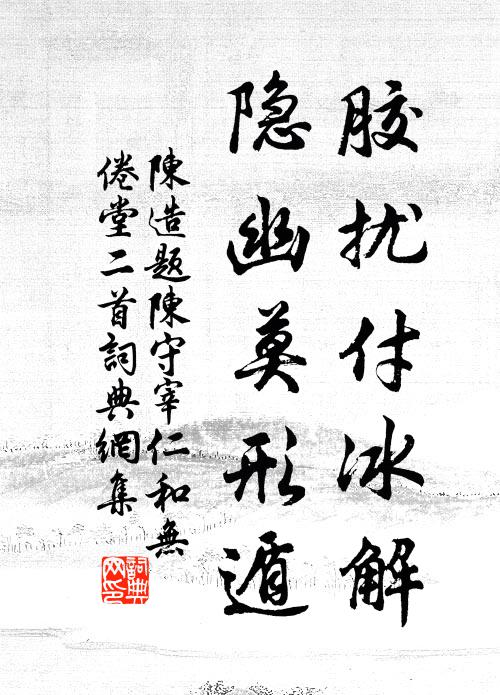 胶扰付冰解
隐幽莫形遁
陳造題陳守宰仁和無
倦堂二首詞典網集
詞典网印